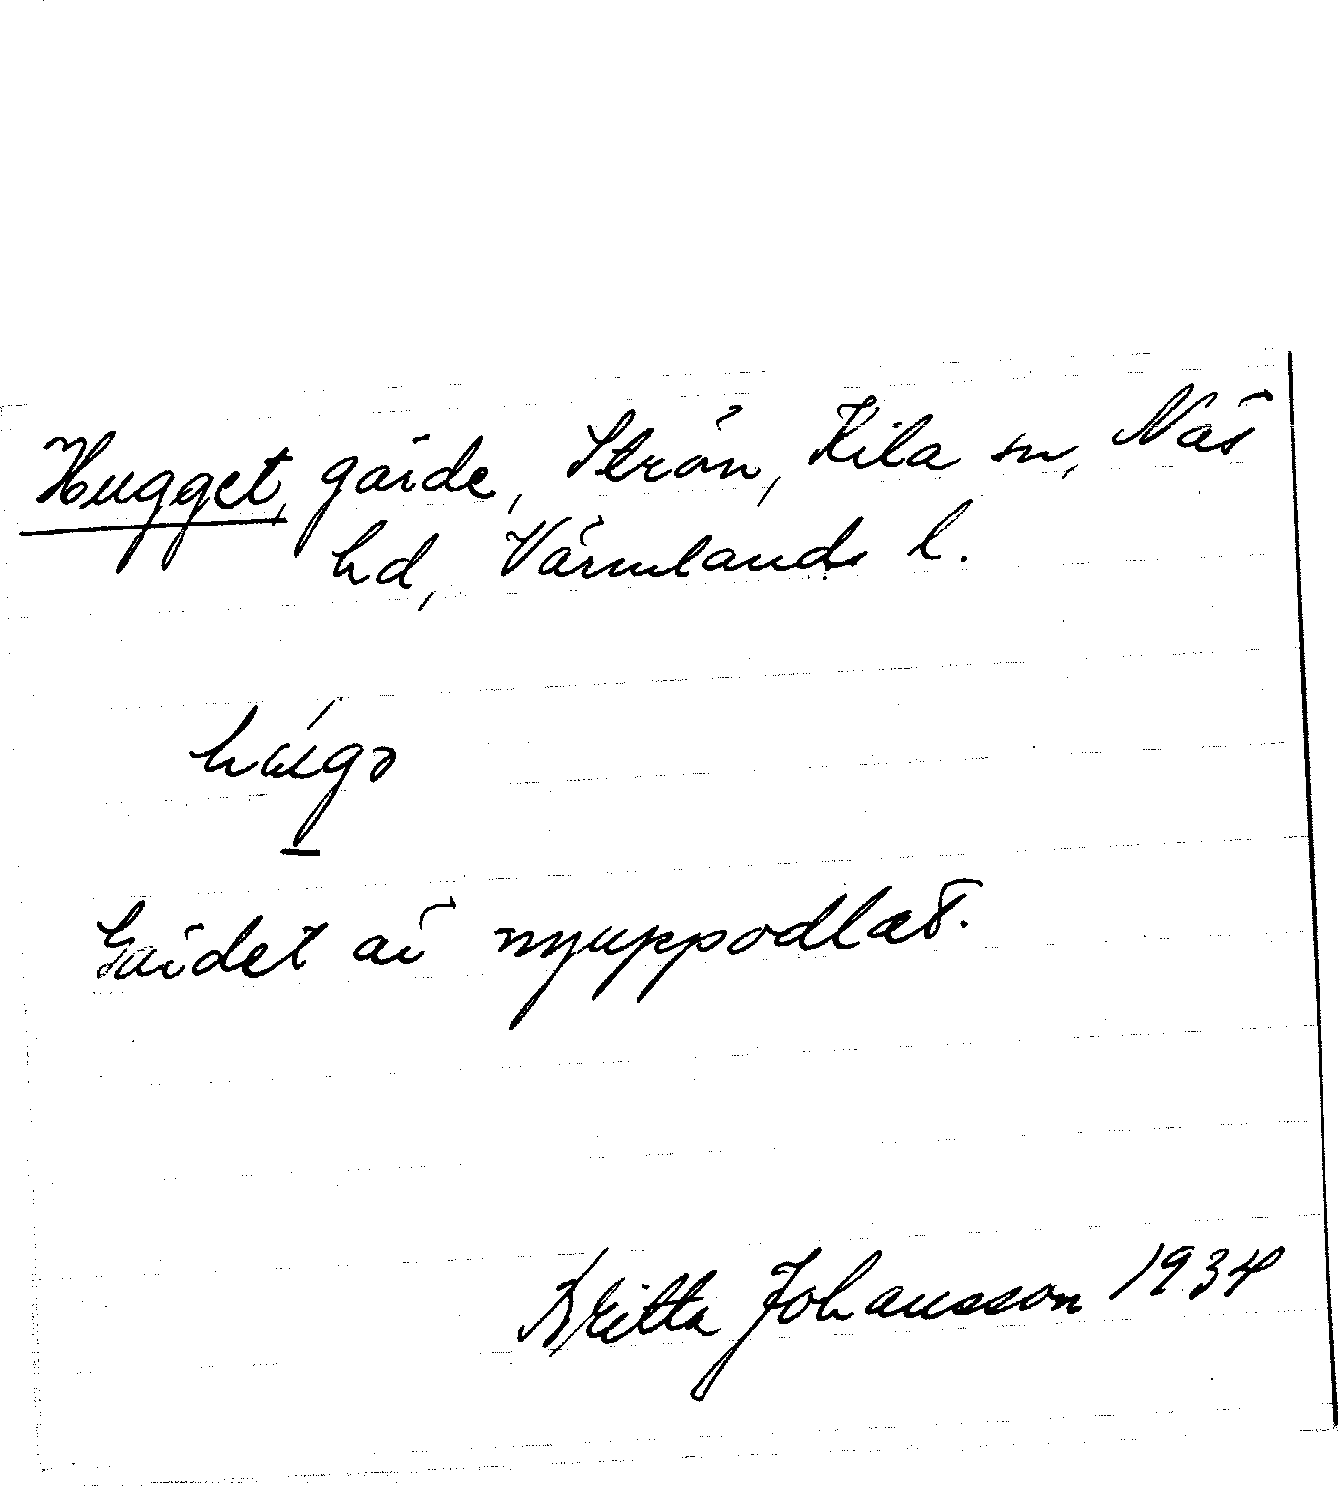 Hugget, gärde, Strön, Kila sn, Näs
hd, Värmlands l.
Gärdet är nyuppodlat.
Britta Johansson 1934